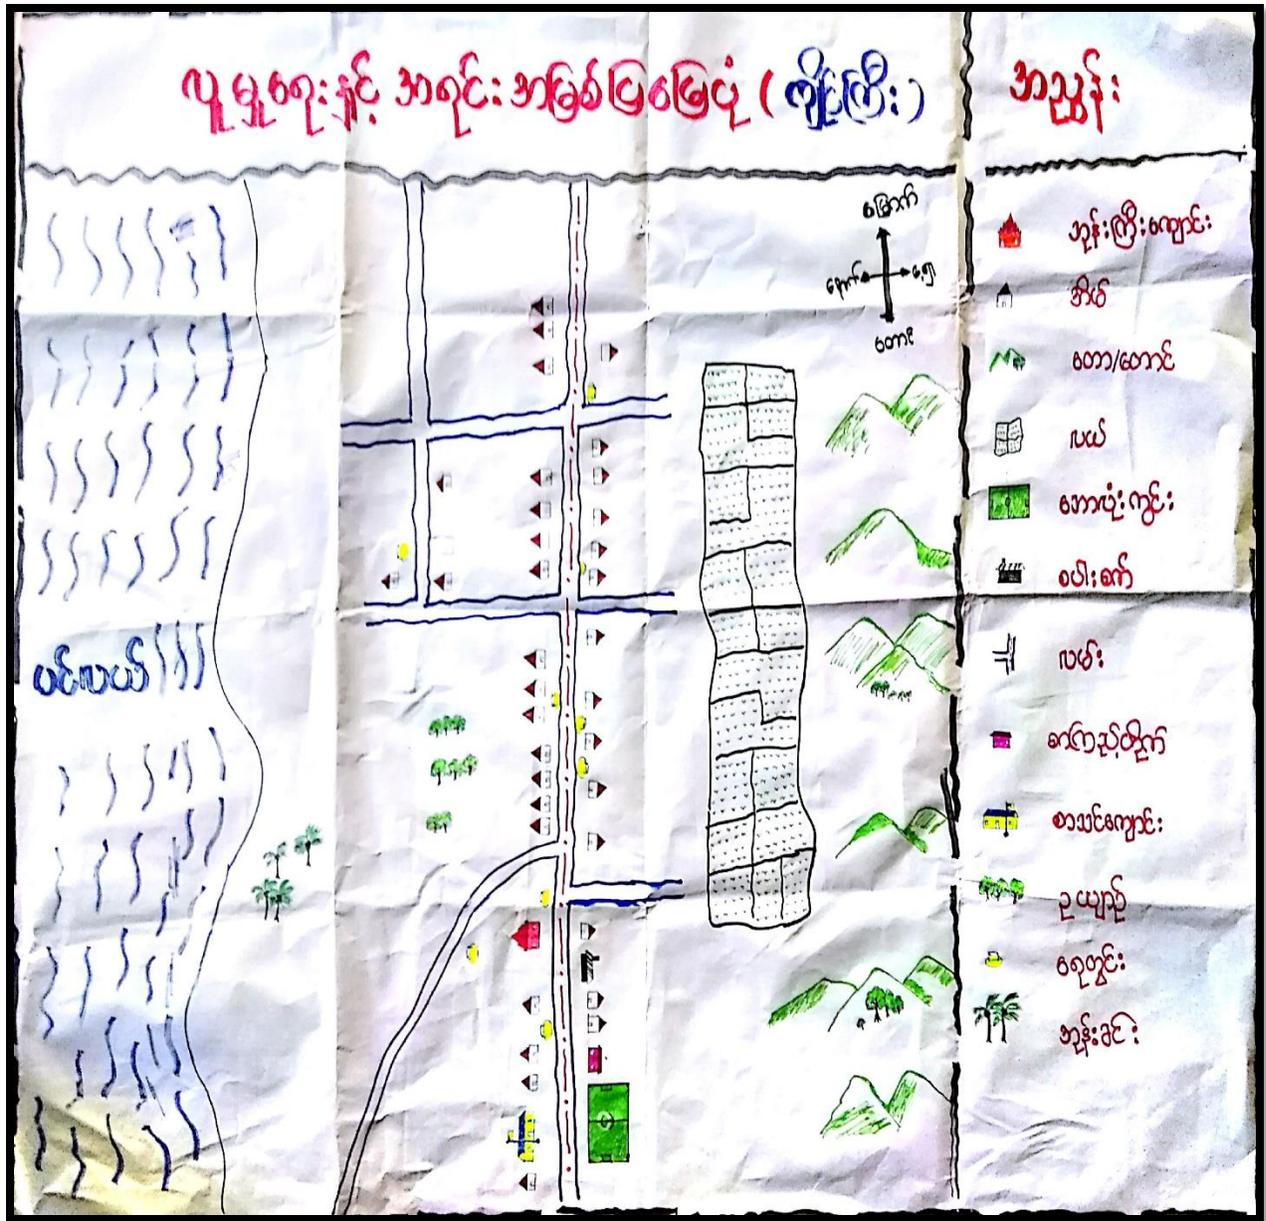 လူမှုရေးနှင့် အရင်းအမြစ်ပြမြေပုံ (ကျိုင်ကြီး)
အညွှန်း
မြောက်
နောက် ရှေ့
တောင်
ပင်လယ်
ဘုန်းကြီးကျောင်း
အိမ်
တော/တောင်
လယ်
ဘောလုံးကွင်း
စပါးစက်
လမ်း
စာကြည့်တိုက်
စာသင်ကျောင်း
ဥယျာဉ်
ရေတွင်း
အုန်းခင်း